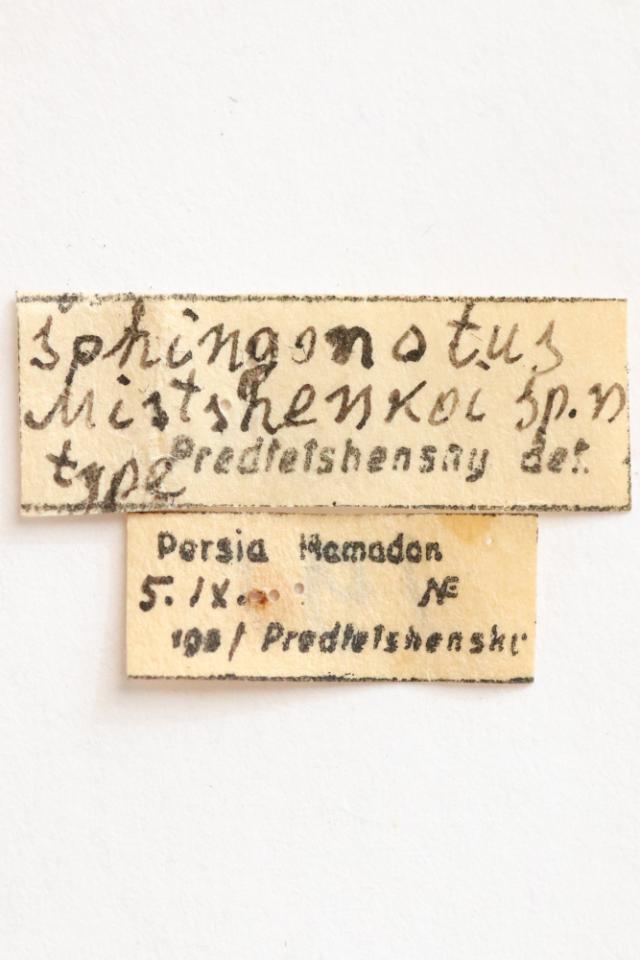 sphingonotus
Mistshenkoi sp.n
type Predtetshensny det.
Persia Hamadan
5. IX. №
Predtetshensky